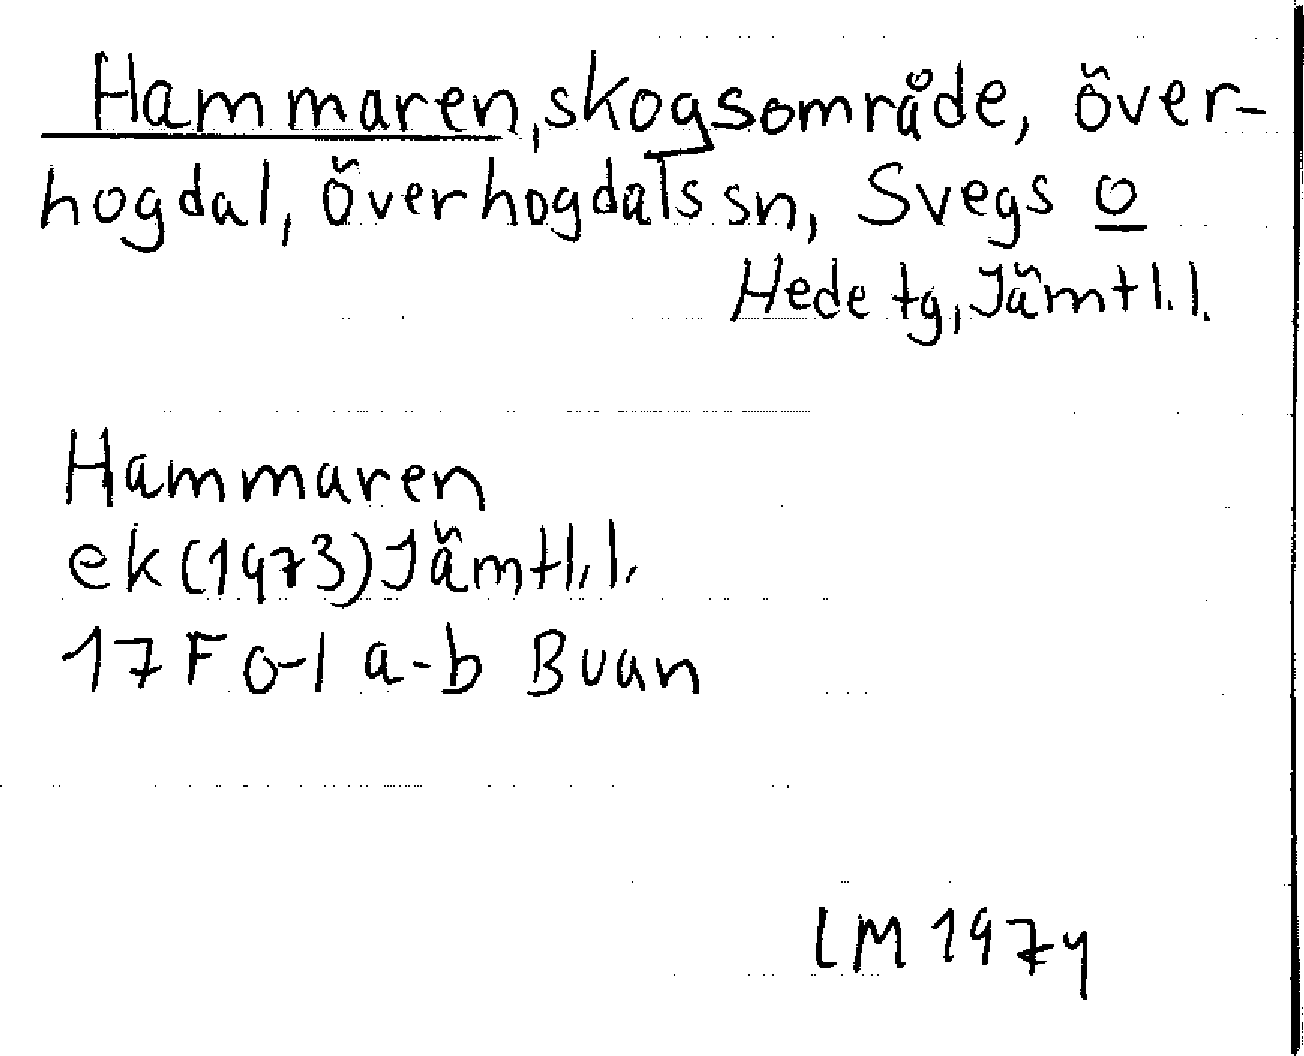 Hammaren, skogsområde, Över-
hogdal, Överhogdals sn, Svegs o
Hede tg, Jämtl. l.
Hammaren
ek (1973) Jämtl. l.
17 F o-l a-b Buan
LM 1974